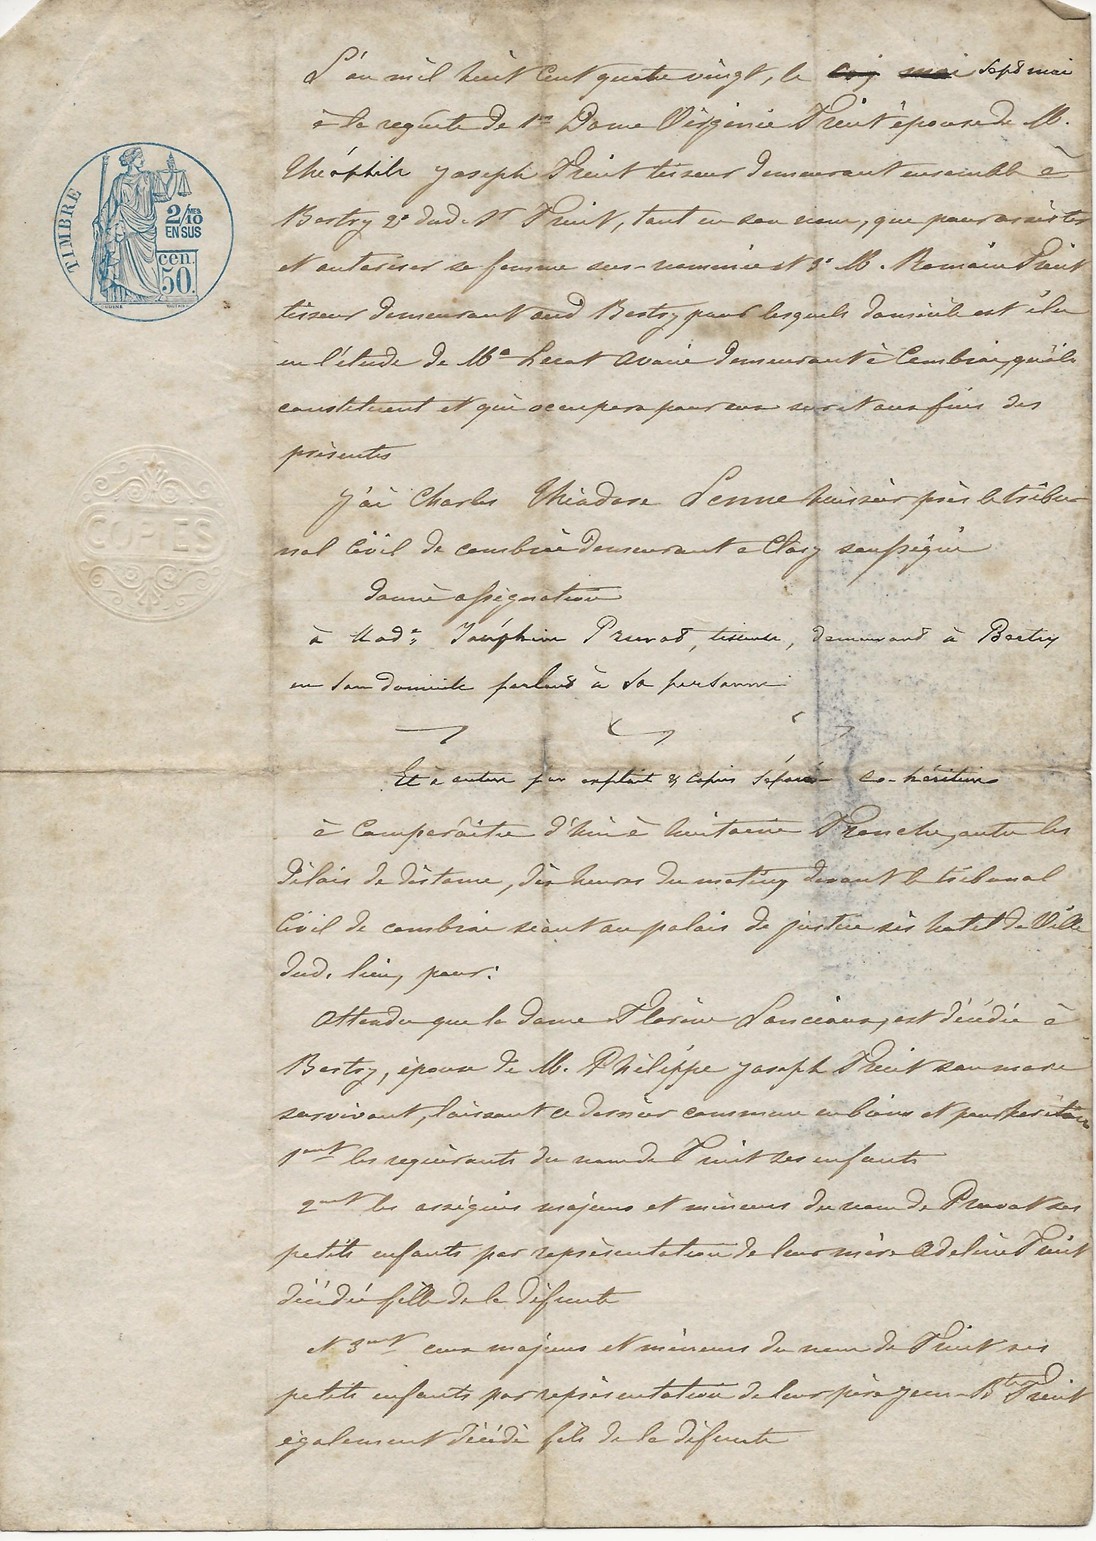 TIMBRE
2/10 MES
EN SUS
50 cen.
COPIES
L'an mil huit cent quatre vingt, le sept mai
à la requête de 1º Dame Virginie Truit épouse de M.
Théophile Joseph Truit tisseur demeurant ensemble à
Bertry 2º dud. Sr Truit, tant en son nom, que pour assister
et autoriser sa femme sus-nommée et 3º M. Romain Truit
tisseur demeurant aud Bertry pour lesquels domicile est élu
en l'étude de Me avoué demeurant à Cambrai, qu'ils
constituent et qui occupera pour eux sur et aux fins des
présentes
J'ai Charles Théodore Lenne huissier près le tribu
nal Civil de cambrai demeurant a Clary soussigné
donné assignation
à Made Joséphine Pruvot, tisseuse, demeurant à Bertry
en son domicile parlant à sa personne
Et à autres par exploit & copies séparés co-héritiers
à Comparaître d'hui à huitaine Franche, outre les
délais de distance, dix heures du matin, devant le tribunal
Civil de cambrai séant au palais de justice sis hotel de Ville
dud. lieu, pour:
Attendu que la dame Florine Lanciaux, est décédée à
Bertry, épouse de M. Philippe Joseph Truit son mari
survivant, laissant ce dernier commun en biens et pour héritiers
1ent les requérants du nom de Truit ses enfants
2ent les assignés majeurs et mineurs du nom de Pruvot ses
petits enfants par représentation de leur mère Adeline Truit
décédée fille de la défunte
et 3ent ceux majeurs et mineurs du nom de Truit ses
petits enfants par représentation de leur père Jean-Bte Truit
également décédé fils de la défunte